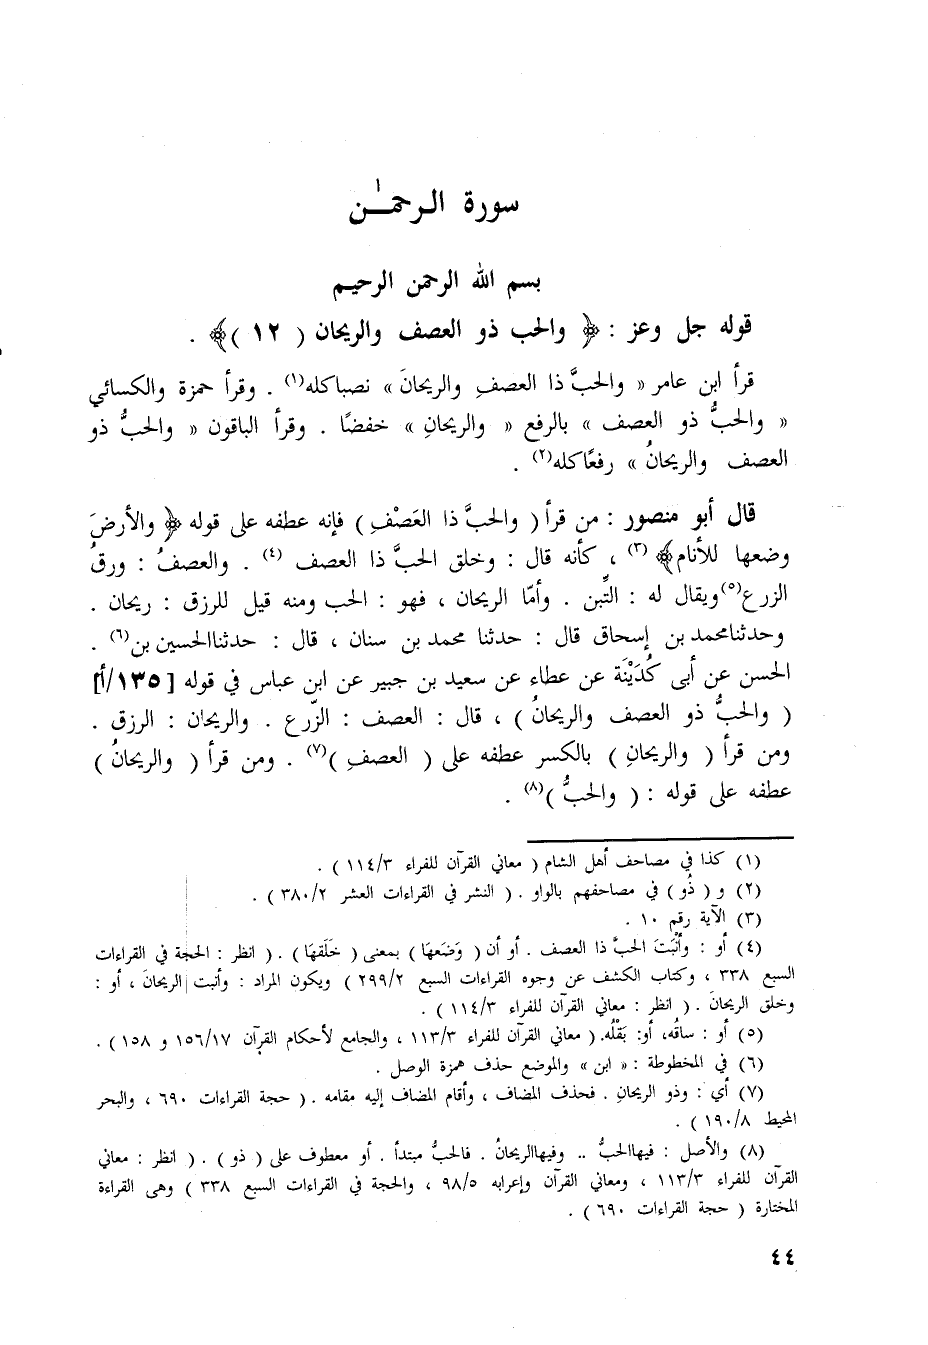 سورة الرحمٰن
بسم الله الرحمن الرحيم
قوله جل وعز : ﴿ والحب ذو العصف والريحان ( ١٢ )﴾ .
قرأ ابن عامر « والحبَّ ذا العصفِ والريحانَ » نصبا كله(١) . وقرأ حمزة والكسائي
« والحبُّ ذو العصف » بالرفع « والريحانِ » خفضًا . وقرأ الباقون « والحبُّ ذو
العصف والريحانُ » رفعًا كله(٢) .
قال أبو منصور : من قرأ ( والحبَّ ذا العَصْفِ ) فإنه عطفه على قوله ﴿ والأرضَ
وضعها للأنام﴾ (٣) ، كأنه قال : وخلق الحبَّ ذا العصف (٤) . والعصفُ : ورقُ
الزرع(٥) ويقال له : التِّبن . وأمّا الريحان ، فهو : الحب ومنه قيل للرزق : ريحان .
وحدثنا محمد بن إسحاق قال : حدثنا محمد بن سنان ، قال : حدثنا الحسين بن(٦) .
الحسن عن أبى كُدَيْنَة عن عطاء عن سعيد بن جبير عن ابن عباس في قوله [ ١٣٥/أ]
( والحبُّ ذو العصف والريحانُ ) ، قال : العصف : الزّرع . والريحان : الرزق .
ومن قرأ ( والريحانِ ) بالكسر عطفه على ( العصفِ )(٧) . ومن قرأ ( والريحانُ )
عطفه على قوله : ( والحبُّ )(٨) .
(١) كذا في مصاحف أهل الشام ( معاني القرآن للفراء ١١٤/٣ ) .
(٢) و ( ذُو ) في مصاحفهم بالواو . ( النشر في القراءات العشر ٣٨٠/٢ ) .
(٣) الآية رقم ١٠ .
(٤) أو : وأنْبَتَ الحبَّ ذا العصف . أو أن ( وَضَعهَا ) بمعنى ( خَلَقهَا ) . ( انظر : الحجة في القراءات
السبع ٣٣٨ ، وكتاب الكشف عن وجوه القراءات السبع ٢٩٩/٢ ) ويكون المراد : وأنبت الريحانَ ، أو :
وخلق الريحانَ . ( انظر : معاني القرآن للفراء ١١٤/٣ ) .
(٥) أو : ساقُه، أو: بَقْلُه. ( معاني القرآن للفراء ١١٣/٣ ، والجامع لأحكام القرآن ١٥٦/١٧ و ١٥٨ ) .
(٦) في المخطوطة : « ابن » والموضع حذف همزة الوصل .
(٧) أي : وذو الريحانِ . فحذف المضاف ، وأقام المضاف إليه مقامه . ( حجة القراءات ٦٩٠ ، والبحر
المحيط ١٩٠/٨ ) .
(٨) والأصل : فيها الحبُّ .. وفيها الريحانُ . فالحبُّ مبتدأ . أو معطوف على ( ذو ) . ( انظر : معاني
القرآن للفراء ١١٣/٣ ، ومعاني القرآن وإعرابه ٩٨/٥ ، والحجة في القراءات السبع ٣٣٨ ) وهى القراءة
المختارة ( حجة القراءات ٦٩٠ ) .
٤٤